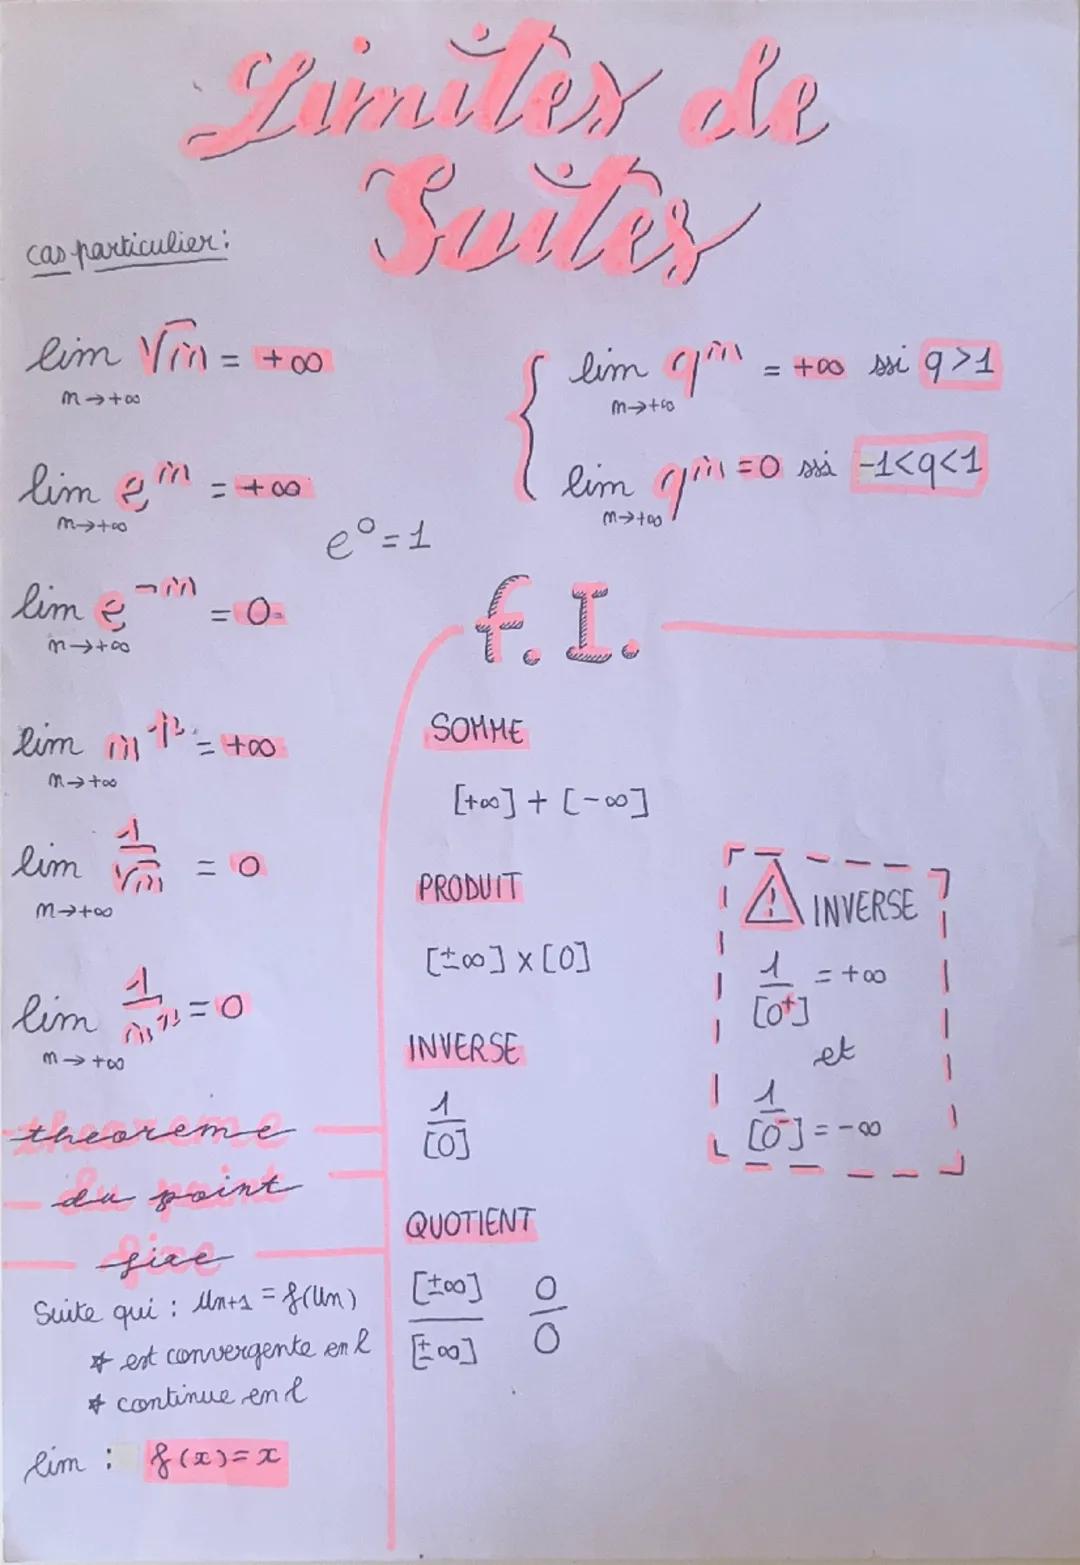 Limites de
Suites
cas particulier:
lim √n = +∞
n→+∞
lim eⁿ = +∞
n→+∞
e⁰=1
lim e⁻ⁿ = 0
n→+∞
lim nᵖ = +∞
n→+∞
lim 1/√n = 0
n→+∞
lim 1/nᵖ = 0
n→+∞
{ lim qⁿ = +∞ ssi q>1
n→+∞
lim qⁿ = 0 ssi -1<q<1
n→+∞
f.I.
SOMME
[+∞] + [-∞]
PRODUIT
[±∞] x [0]
INVERSE
1/[0]
QUOTIENT
[±∞]/[±∞] 0/0
⚠ INVERSE
1/[0⁺] = +∞
et
1/[0⁻] = -∞
theoreme
du point
fixe
Suite qui : Un+1 = f(Un)
* est convergente en l
* continue en l
lim : f(x)=x